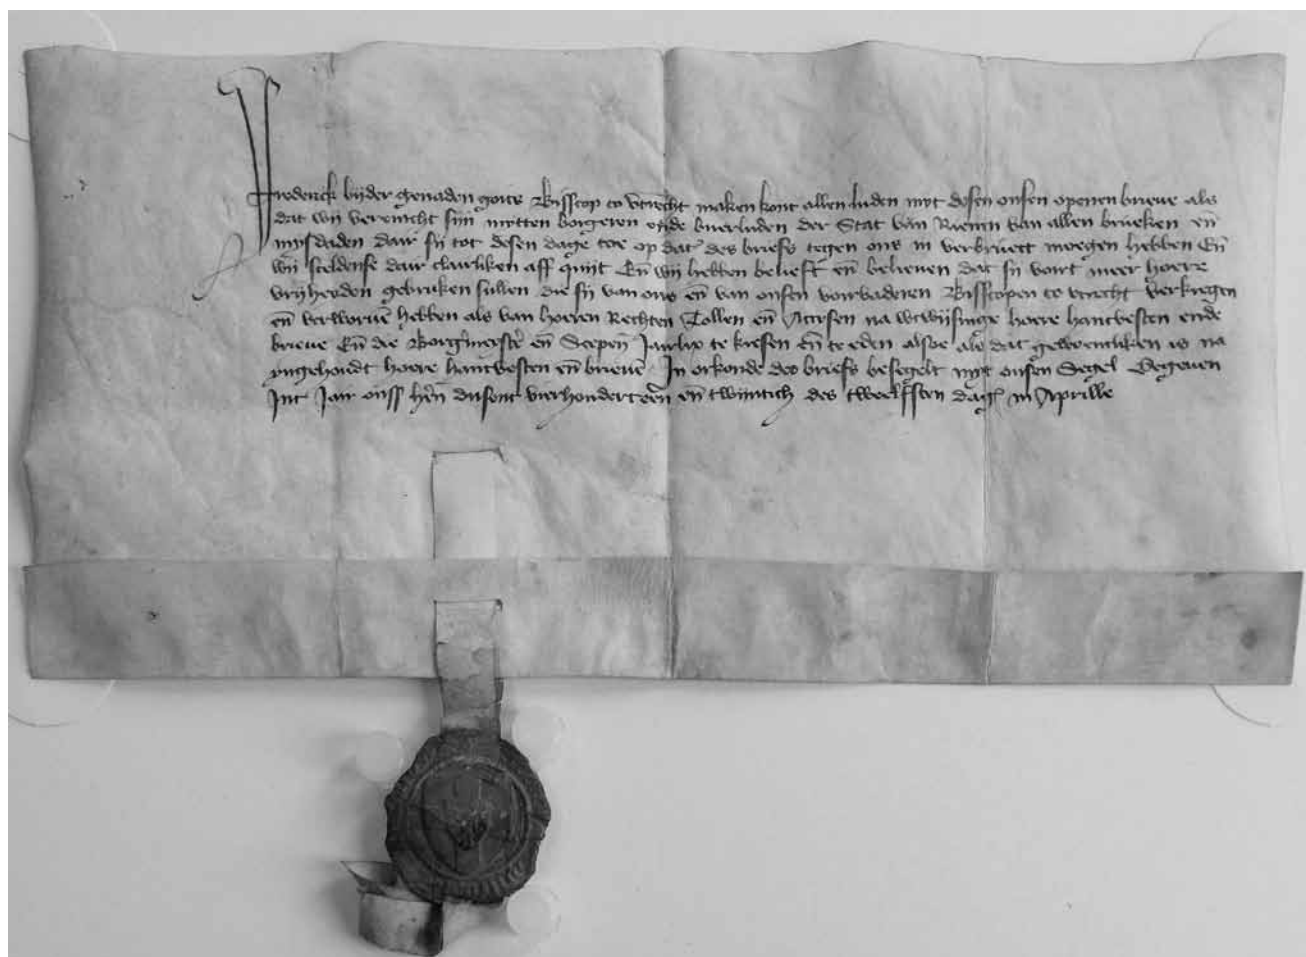 Frederick bijder genaden goits Bisscop to Utrecht maken kont allen luden myt desen onsen openen brieue als
dat wij vereinicht sijn mytten borgeren ende buerluden der Stat van Rienen van allen brueken en̄
mysdaden dair sij tot desen dage toe op dat͛ des briefs tegen ons in verbruect moegen hebben En̄
wij sceldense dair clairliken aff quijt En̄ wij hebben belieft en̄ belieuen dat sij voirt meer hoere
vrijheyden gebruken sullen die sij van ons en̄ van onsen voirvaderen Bisscopen to utrecht verkregen
en̄ verworuē hebben als van hoeren Rechten Tollen en̄ na wtwijsinge hoere hantvesten ende
brieue En̄ die en̄ Scepen̄ Jairlix te kiesen en̄ te eden alsoe als dat gewoentliken is na
yngehoudt hoere hantvesten en̄ brieuē In orkonde des briefs besegelt myt onsen Segel Gegeuen
Int Jair ons͛ hērn dusent vierhondert een̄ en̄ twijntich des tweelfften dag͛ in Aprille